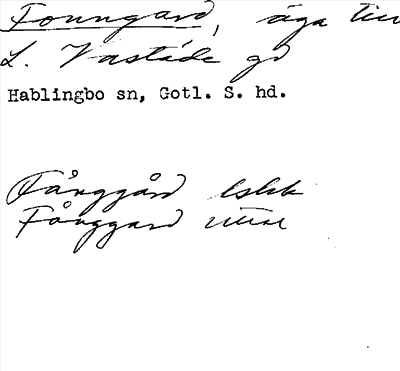 Fonngard, äga till
L. Vastäde gd
Hablingbo sn, Gotl. S. hd.
Fånggård
Fånggard